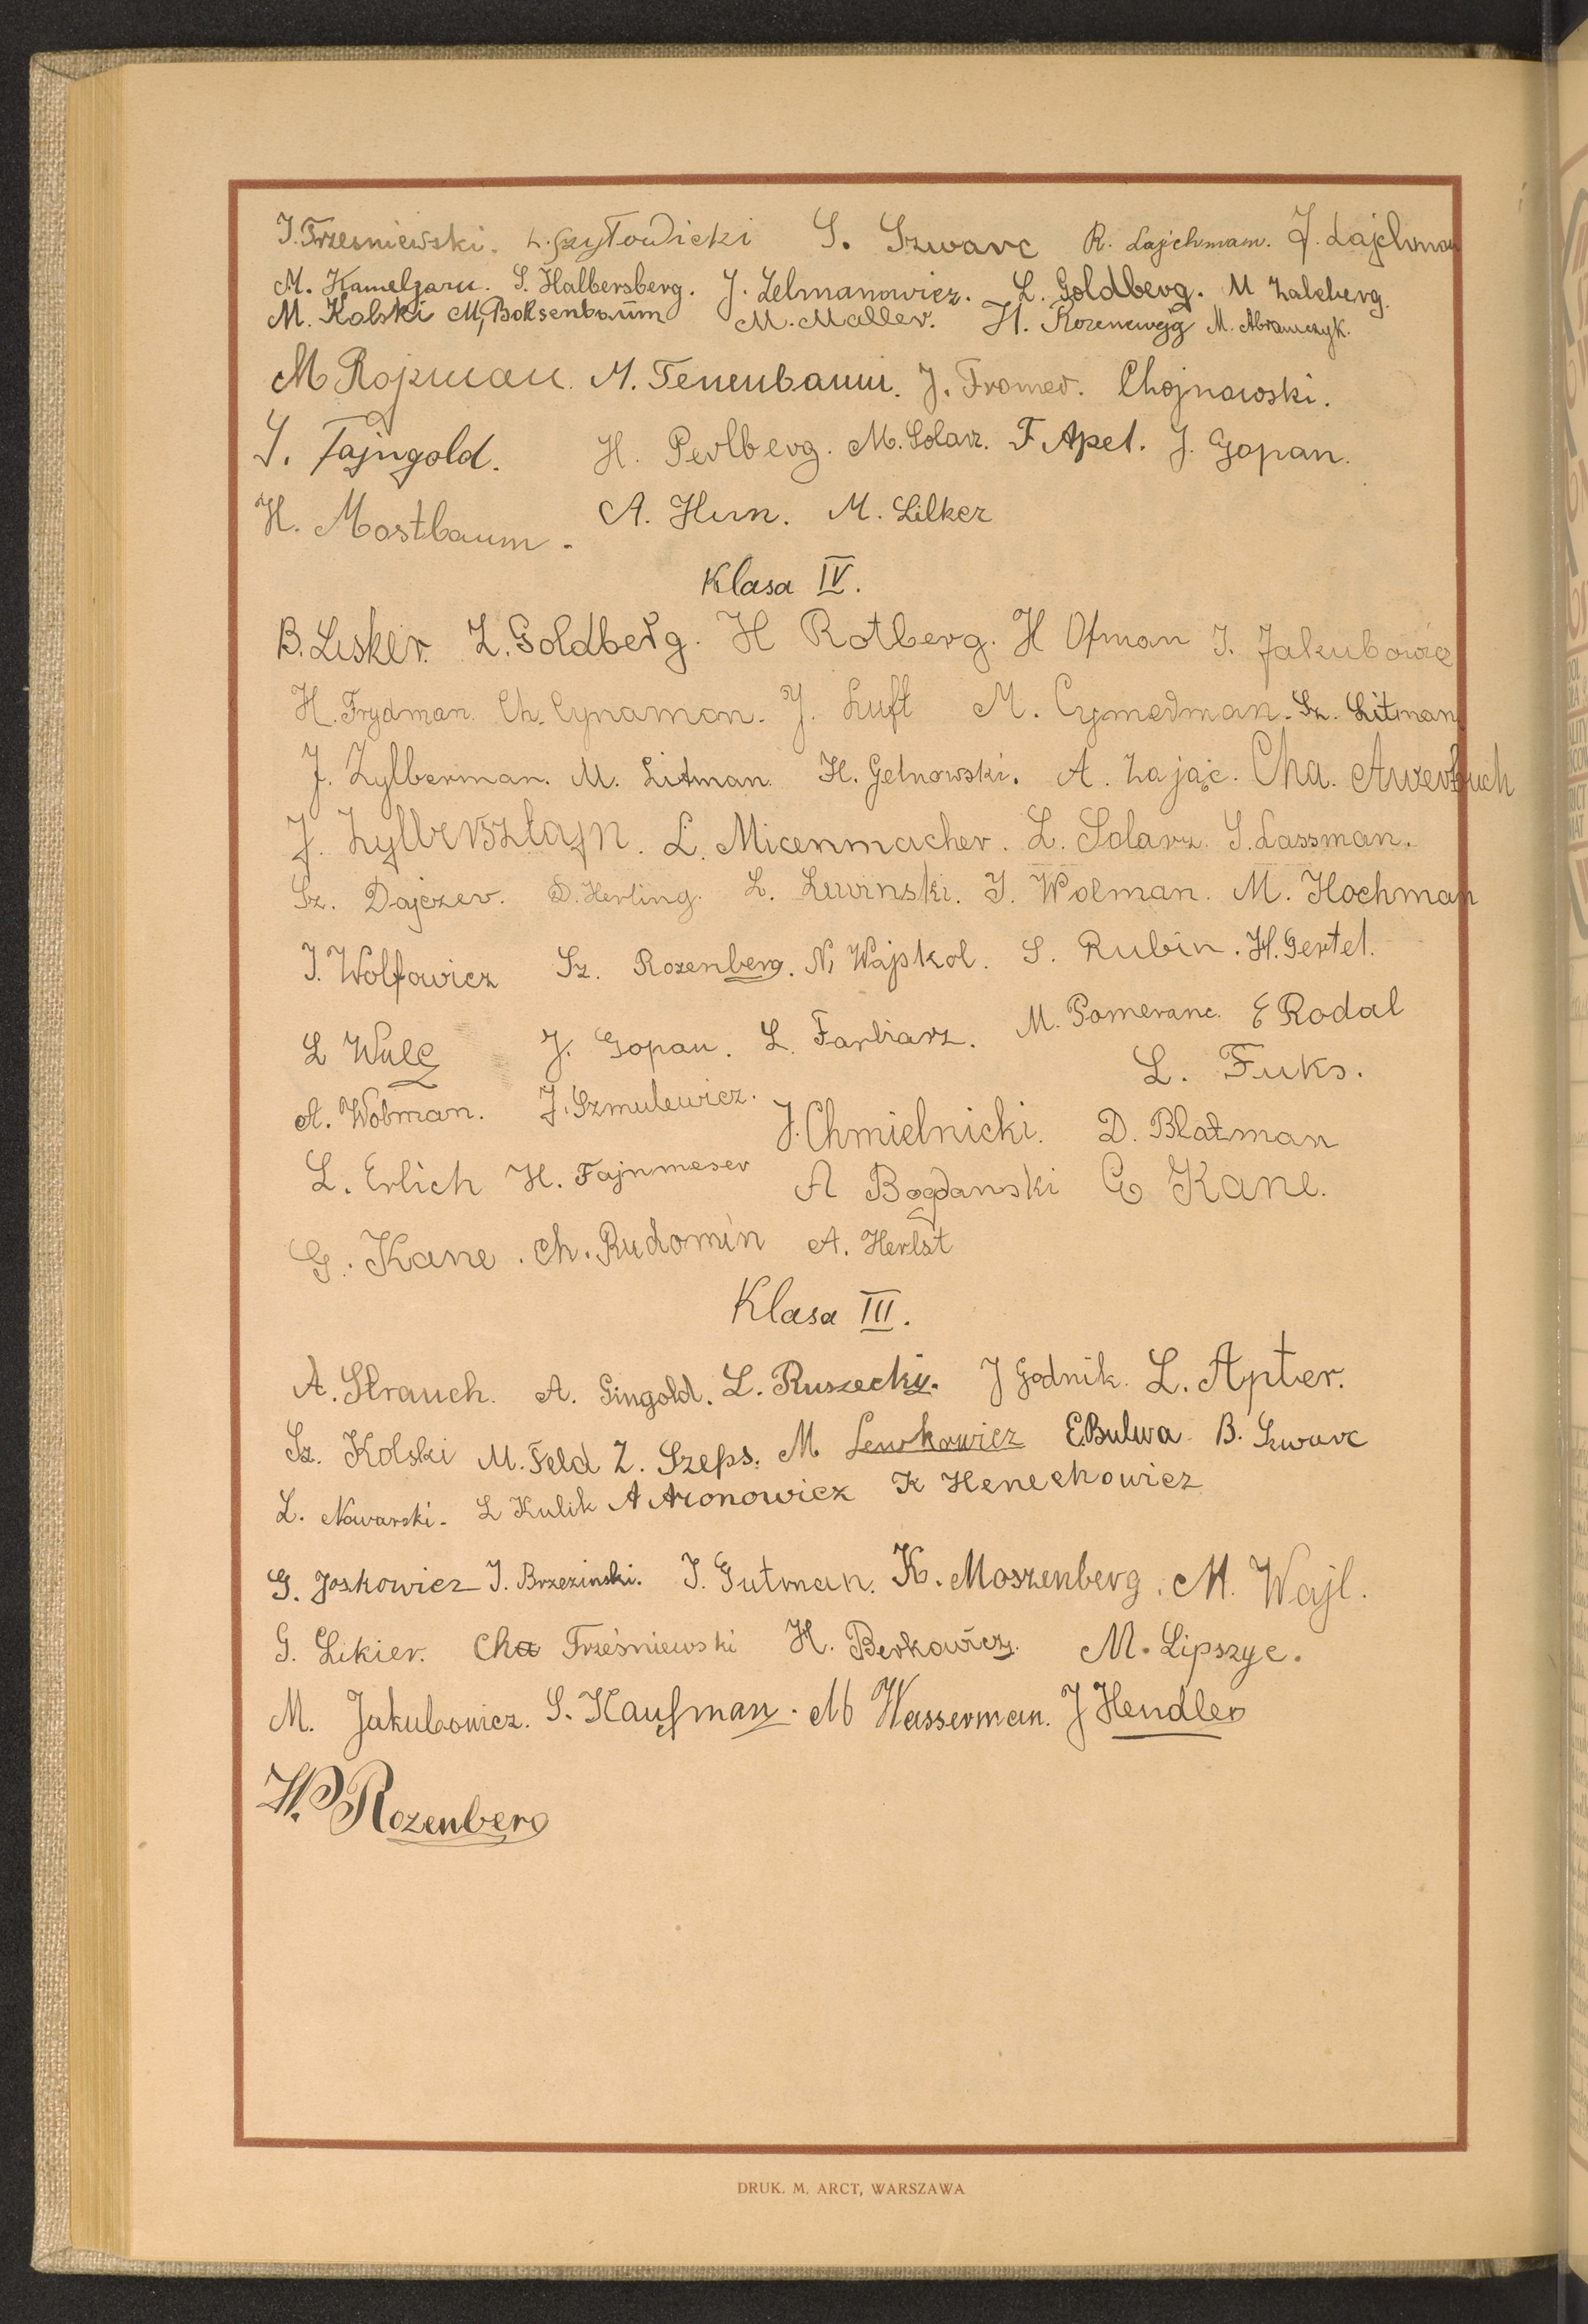 J. Trzesniewski. L. Szytowicki S. Szwarc R. Lajchmam. J. Lajchman
M. Kamelgarn. S. Halbersberg. J. Zelmanowicz. L. Goldberg. M Zalcberg.
M. Kolski M. Boksenbaum M. Maller. H. Rozencwajg M. Abramczyk.
M Rojzman. M. Tenenbaum. J. Fromer. Chojnowski.
S. Fajngold. H. Perlberg. M. Solarz. F Apel. J. Gopan.
H. Mostbaum. A. Hun. M. Lilker
Klasa IV.
B. Lisker. Z. Goldberg. H Rotberg. H Ofman I. Jakubowicz
H. Frydman. Ch. Cynamon. J. Luft M. Cymerman. Sz. Litman
J. Zylberman. M. Litman. H. Gelnowski. A. Zając. Cha. Awerbuch
J. Zylbersztajn. L. Micenmacher. L. Solarz. S. Lassman.
Sz. Dajczer. D. Herling. L. Lewinski. J. Wolman. M. Hochman
J. Wolfowicz Sz. Rozenberg. N. Wajskol. S. Rubin. H. Gertel.
L Wulc J. Gopan. L. Farbiarz. M. Pomeranc. E Rodal
L. Fuks.
A. Wolman. J. Szmulewicz.
J. Chmielnicki. D. Blatman
L. Erlich H. Fajnmeser A Bogdanski G Kane.
G. Kane. Ch. Rudomin A. Herbst
Klasa III.
A. Strauch. A. Gingold. L. Ruszecki. J Godnik. L. Apter.
Sz. Kolski M. Feld Z. Szeps. M Lewkowicz E. Bulwa. B. Szwarc
L. Nowarski. L Kulik A Aronowicz K Henechowicz
G. Joskowicz J. Brzezinski. J. Gutman. K. Moszenberg. M. Wajl.
G. Likier. Cha Trześniewski H. Berkowicz. M. Lipszyc.
M. Jakubowicz. S. Kaufman. M Wasserman. J Hendler
W. Rozenberg
DRUK. M. ARCT, WARSZAWA